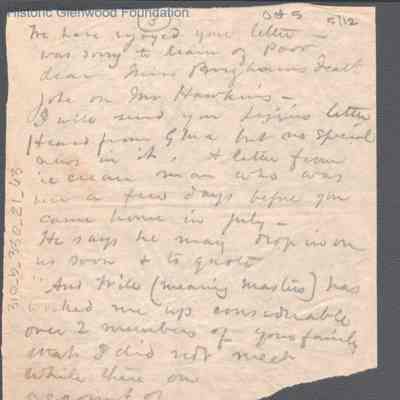 Historic Glenwood Foundation
(3)
5/12
We have enjoyed your letter —
was sorry to learn of Poor
dear Miss Brigham's death
joke on Mr Hawkins —
I will send you letter
Heard from but no special
news in it. A letter from
ice cream man who was
here a few days before you
came home in July —
He says he may drop in on
us soon & to quote
"And (meaning Masters) has
worked me up considerable
over 2 members of your family
I did not meet
while there on
account of
310_b_350_21_43